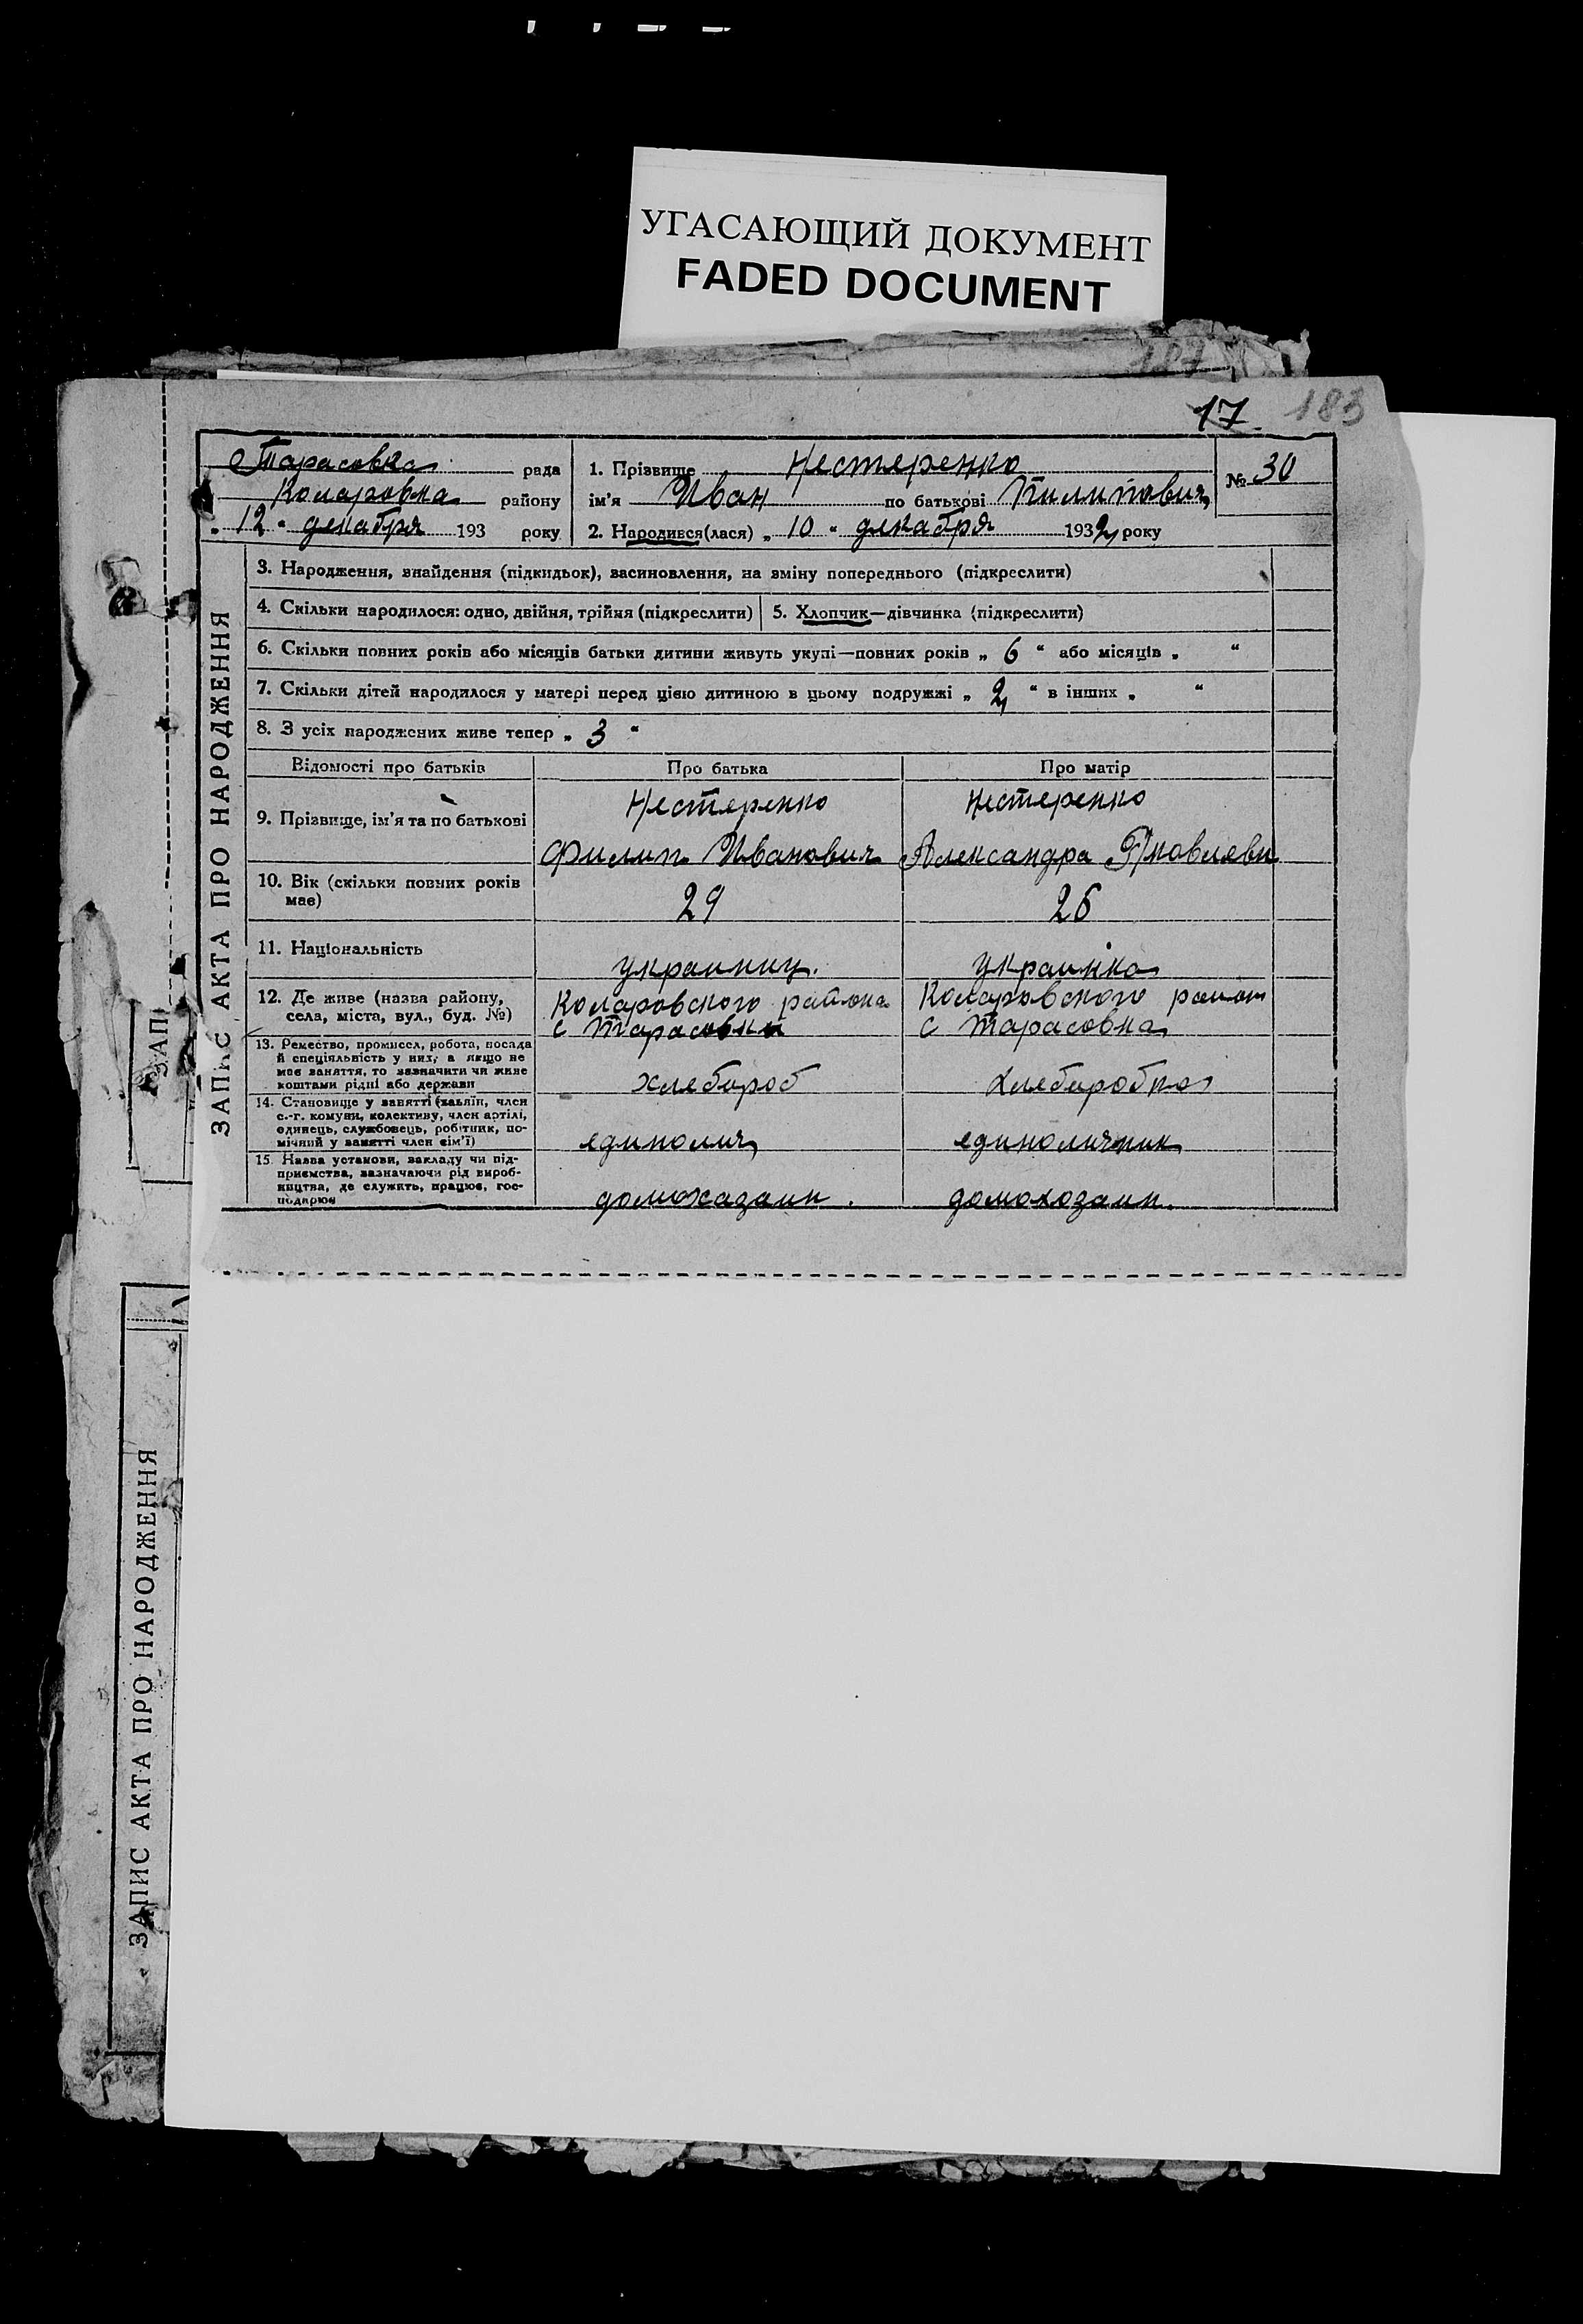 УГАСАЮЩИЙ ДОКУМЕНТ
FADED DOCUMENT
187
17. 183
Тарасовка рада
Коларовка району
„ 12 " декабря 193 року
1. Прізвище Нестеренко
ім'я Иван по батькові Пилипович
2. Народився(лася) „ 10 " декабря 1932 року
№ 30
ЗАПИС АКТА ПРО НАРОДЖЕННЯ
3. Народження, знайдення (підкидьок), засиновлення, на зміну попереднього (підкреслити)
4. Скільки народилося: одно, двійня, трійня (підкреслити) 5. Хлопчик—дівчинка (підкреслити)
6. Скільки повних років або місяців батьки дитини живуть укупі—повних років „ 6 " або місяців „ "
7. Скільки дітей народилося у матері перед цією дитиною в цьому подружжі „ 2 " в інших „ "
8. З усіх народжених живе тепер „ 3 "
Відомості про батьків Про батька Про матір
9. Прізвище, ім'я та по батькові
Нестеренко Нестеренко
Филип Иванович Александра Яковлевн
10. Вік (скільки повних років
має)
29 26
11. Національність
украинец. украинка
12. Де живе (назва району,
села, міста, вул., буд. №)
Коларовского района Коларовского район
с Тарасовки с Тарасовка
13. Ремество, промисел, робота, посада
й спеціяльність у них, а якщо не
має заняття, то зазначити чи живе
коштами рідні або держави
хлебороб хлеборобка
14. Становище у занятті (хазяїн, член
с.-г. комуни, колективу, член артілі,
одинець, службовець, робітник, по-
мічний у занятті член сім'ї)
единолич единоличник
15. Назва установи, закладу чи під-
приємства, зазначаючи рід вироб-
ництва, де служить, працює, гос-
подарює
домохазаин . домохозаин.
ЗАП
ЗАПИС АКТА ПРО НАРОДЖЕННЯ